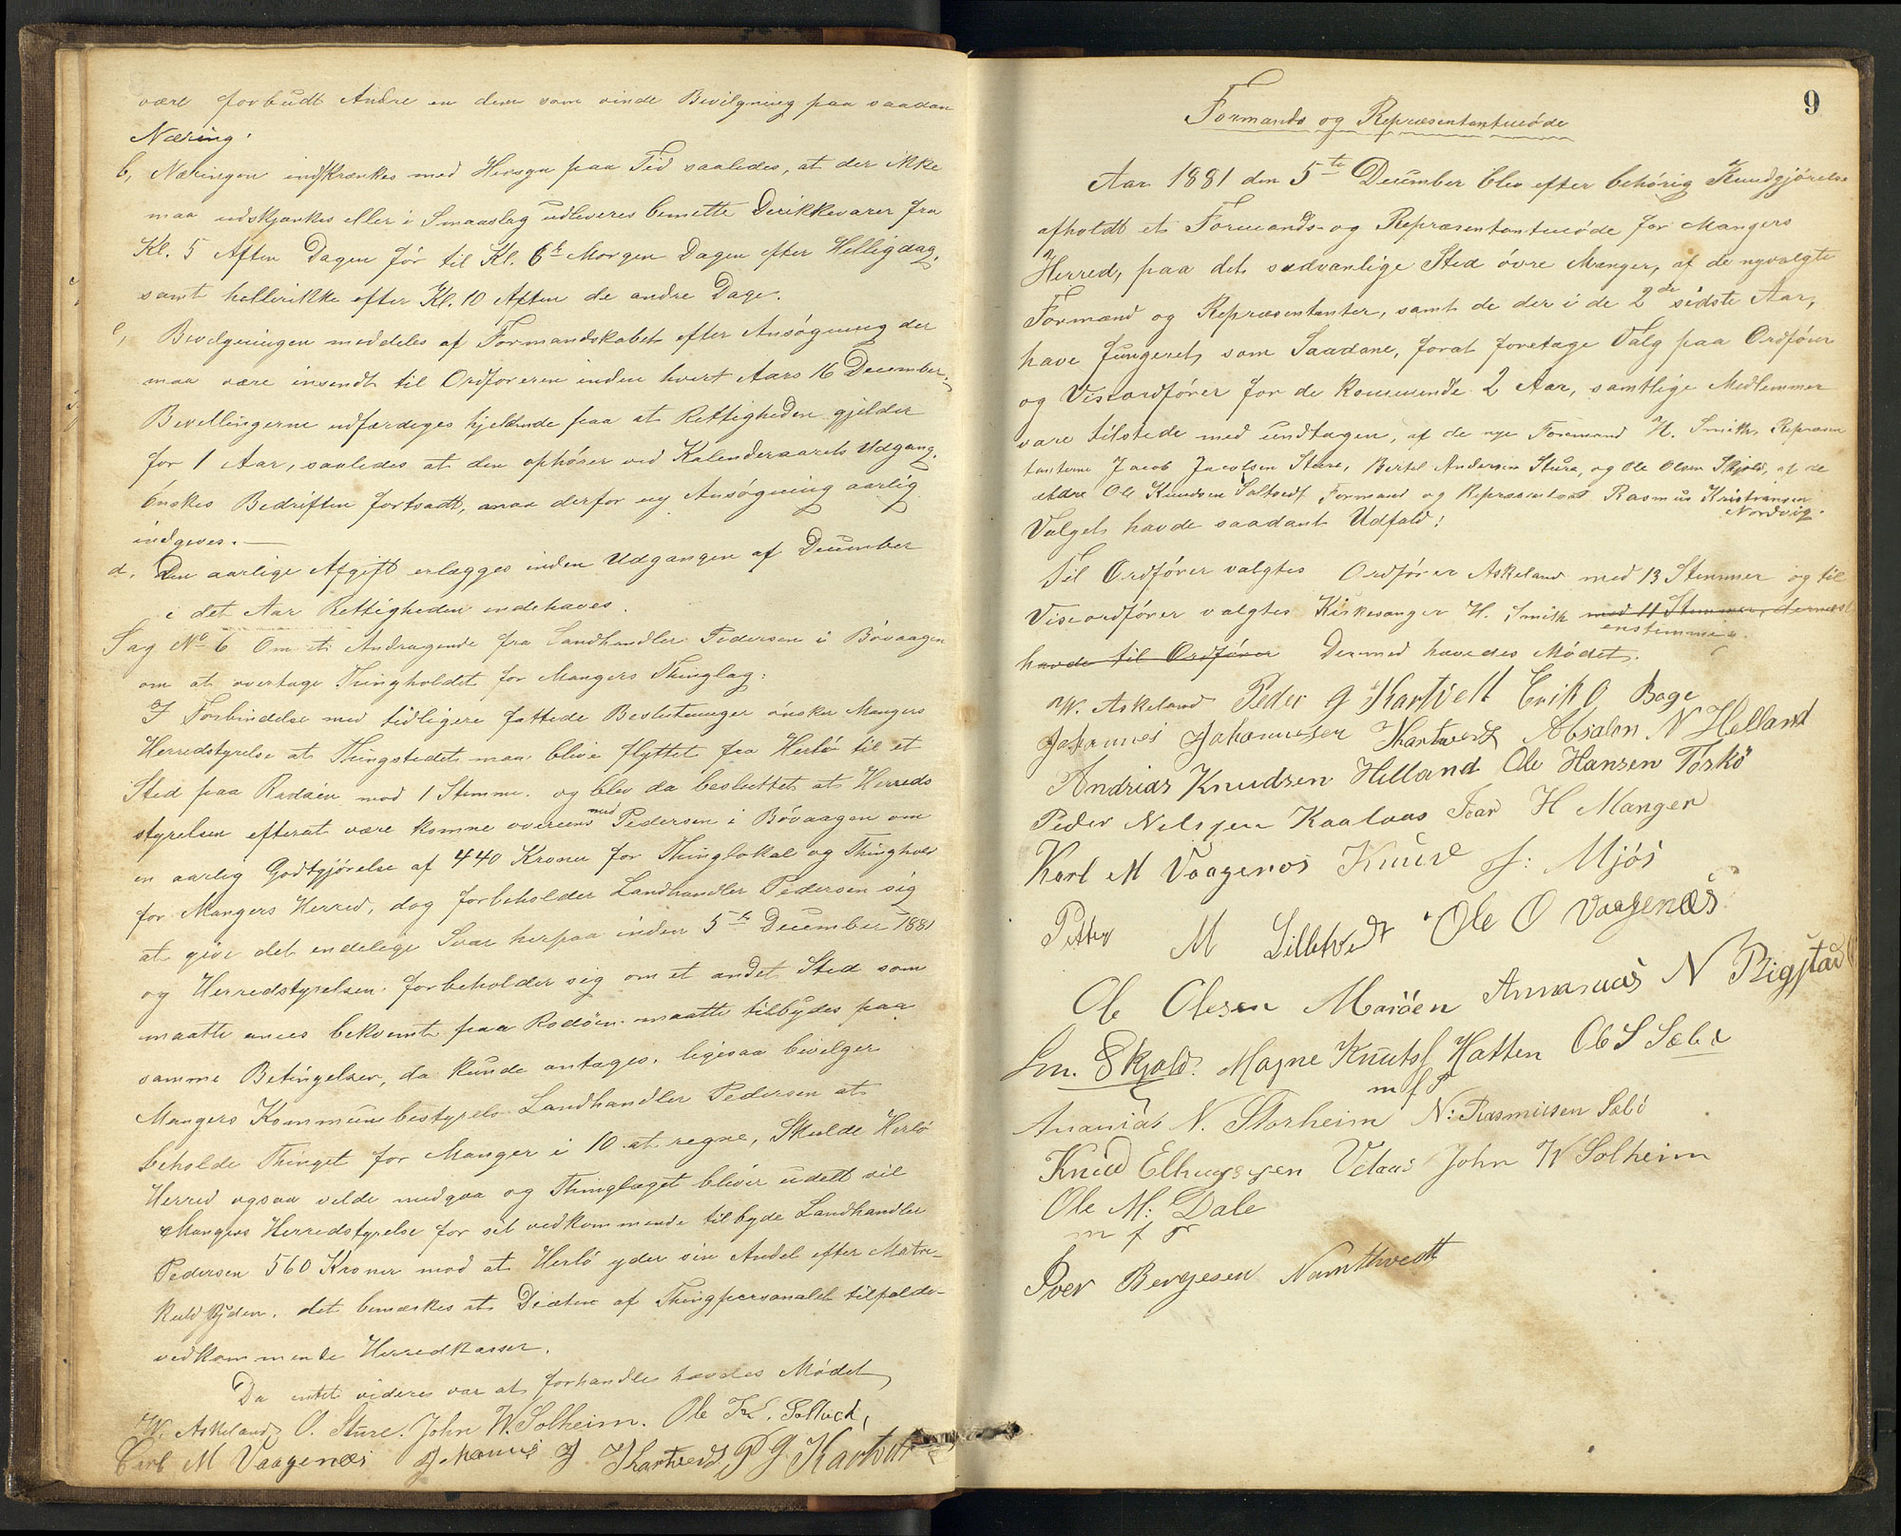 være forbudt Andre en dem som vinde Bevilgning paa saadan
Næring.
b, Næringen indskrænkes med Hensyn paa Tid saaledes, at der ikke
maa udskjænkes eller i Smaaslag udleveres bemelte Derikkevarer fra
Kl. 5 Aften Dagen før til Kl. 6 Morgen Dagen efter Helligdag,
samt hellerikke efter Kl. 10 Aften de andre Dage.
c, Bevilgningen meddeles af Formandskabet efter Ansøgning der
maa være insendt til Ordføreren inden hvert Aars 16 December.
Bevellingerne udfærdiges lydende paa at Rettigheden gjelder
for 1 Aar, saaledes at den ophører ved Kalenderaarets Udgang.
Ønskes Bedriften fortsadt, maa derfor ny Ansøgning aarlig
indgives.—
d. Den aarlige Afgift erlægges inden Udgangen af December
i det Aar Rettigheden indehaves.
Sag No 6 Om et Andragende fra Landhandler Pedersen i Bøvaagen
om at overtage Thingholdet for Mangers Thinglag:
I Forbindelse med tidligere fattede Beslutninger ønsker Mangers
Herredstyrelse at Thingstedet maa blive flyttet fra Herlø til et
Sted paa Radøen mod 1 Stemme. og blev da besluttet at Herreds
styrelsen efterat være komne overens med Pedersen i Bøvaagen om
en aarlig Godtgjørelse af 440 Kroner for Thinglokal og Thinghold
for Mangers Herred, dog forbeholder Landhandler Pedersen sig
at give det endelige Svar herpaa inden 5te December 1881
og Herredstyrelsen forbeholder sig om et andet Sted som
maatte anses bekvemt paa Radøen maatte tilbydes paa
samme Betingelser, da kunde antages. ligesaa bevilger
Mangers Kommunebestyrels Landhandler Pedersen at
beholde Thinget for Manger i 10 at regne, Skulde Herlø
Herred ogsaa velde medgaa og Thinglaget bliver udelt vil
Mangers Herredstyrelse for sit vedkommende tilbyde Landhandler
Pedersen 560 Kroner mod at Herlø yder sin Andel efter Matri-
kulskylden. det bemærkes at Diæten af Thingpersonalet tilfalde
vedkommende Herredkasser.
Da intet videre var at forhandle hævdes Mødet
W. Askeland O. Sture. John W. Solheim. Ole Kn. Soltvedt,
Carl M Vaagenæs Johannes J Kartvedt P G Kartvedt
9
Formands og Repræsentantmøde
Aar 1881 den 5te December blev efter behørig Kundgjørelse
afholdt et Formands- og Repræsentantmøde for Mangers
Herred, paa det sædvanlige Sted øvre Manger, af de nyvalgte
Formænd og Repræsentanter, samt de der i de 2de sidste Aar,
have fungeret som Saadane, forat foretage Valg paa Ordfører
og Viseordfører for de kommende 2 Aar, samtlige Medlemmer
vare tilstede med undtagen, af de nye Formænd H. Smith, Repræsen
tanterne Jacob Jacobsen Sture, Bertel Andersen Sture, og Ole Olsen Skjold, af de
eldre Ole Knudsen Soltvedt Formand og Repræsentant Rasmus Kristiansen
Nordvig.
Valget havde saadant Udfald:
Til Ordfører valgtes Ordfører Askeland med 13 Stemmer og til
Viseordfører valgtes Kirkesanger H. Smith med 11 Stemmer, dernæst
enstemmig.
havde til Ordfører Dermed hævedes Mødet.
W. Askeland Peder G Kartvett Erik O Boge
Johannes Johannesen Kartvedt Absalon N Helland
Andrias Knudsen Helland Ole Hansen Toskö
Peder Nilssen Kaalaas Ivar H Manger
Karl M Vaagenæs Knud J: Mjøs
Petter M Lilletvedt Ole O Vaagenæs
Ole Olesen Marøen Annanias N Rigstad
Sm. Skjold. Magne Knuts Hatten Ole S Sæbø
m f P
Ananias N. Storheim N: Rasmussen Sæbö
Knud Elling Velaas John W Solheim
Ole M: Dale
m f P
Iver Bergesen Namthvedt